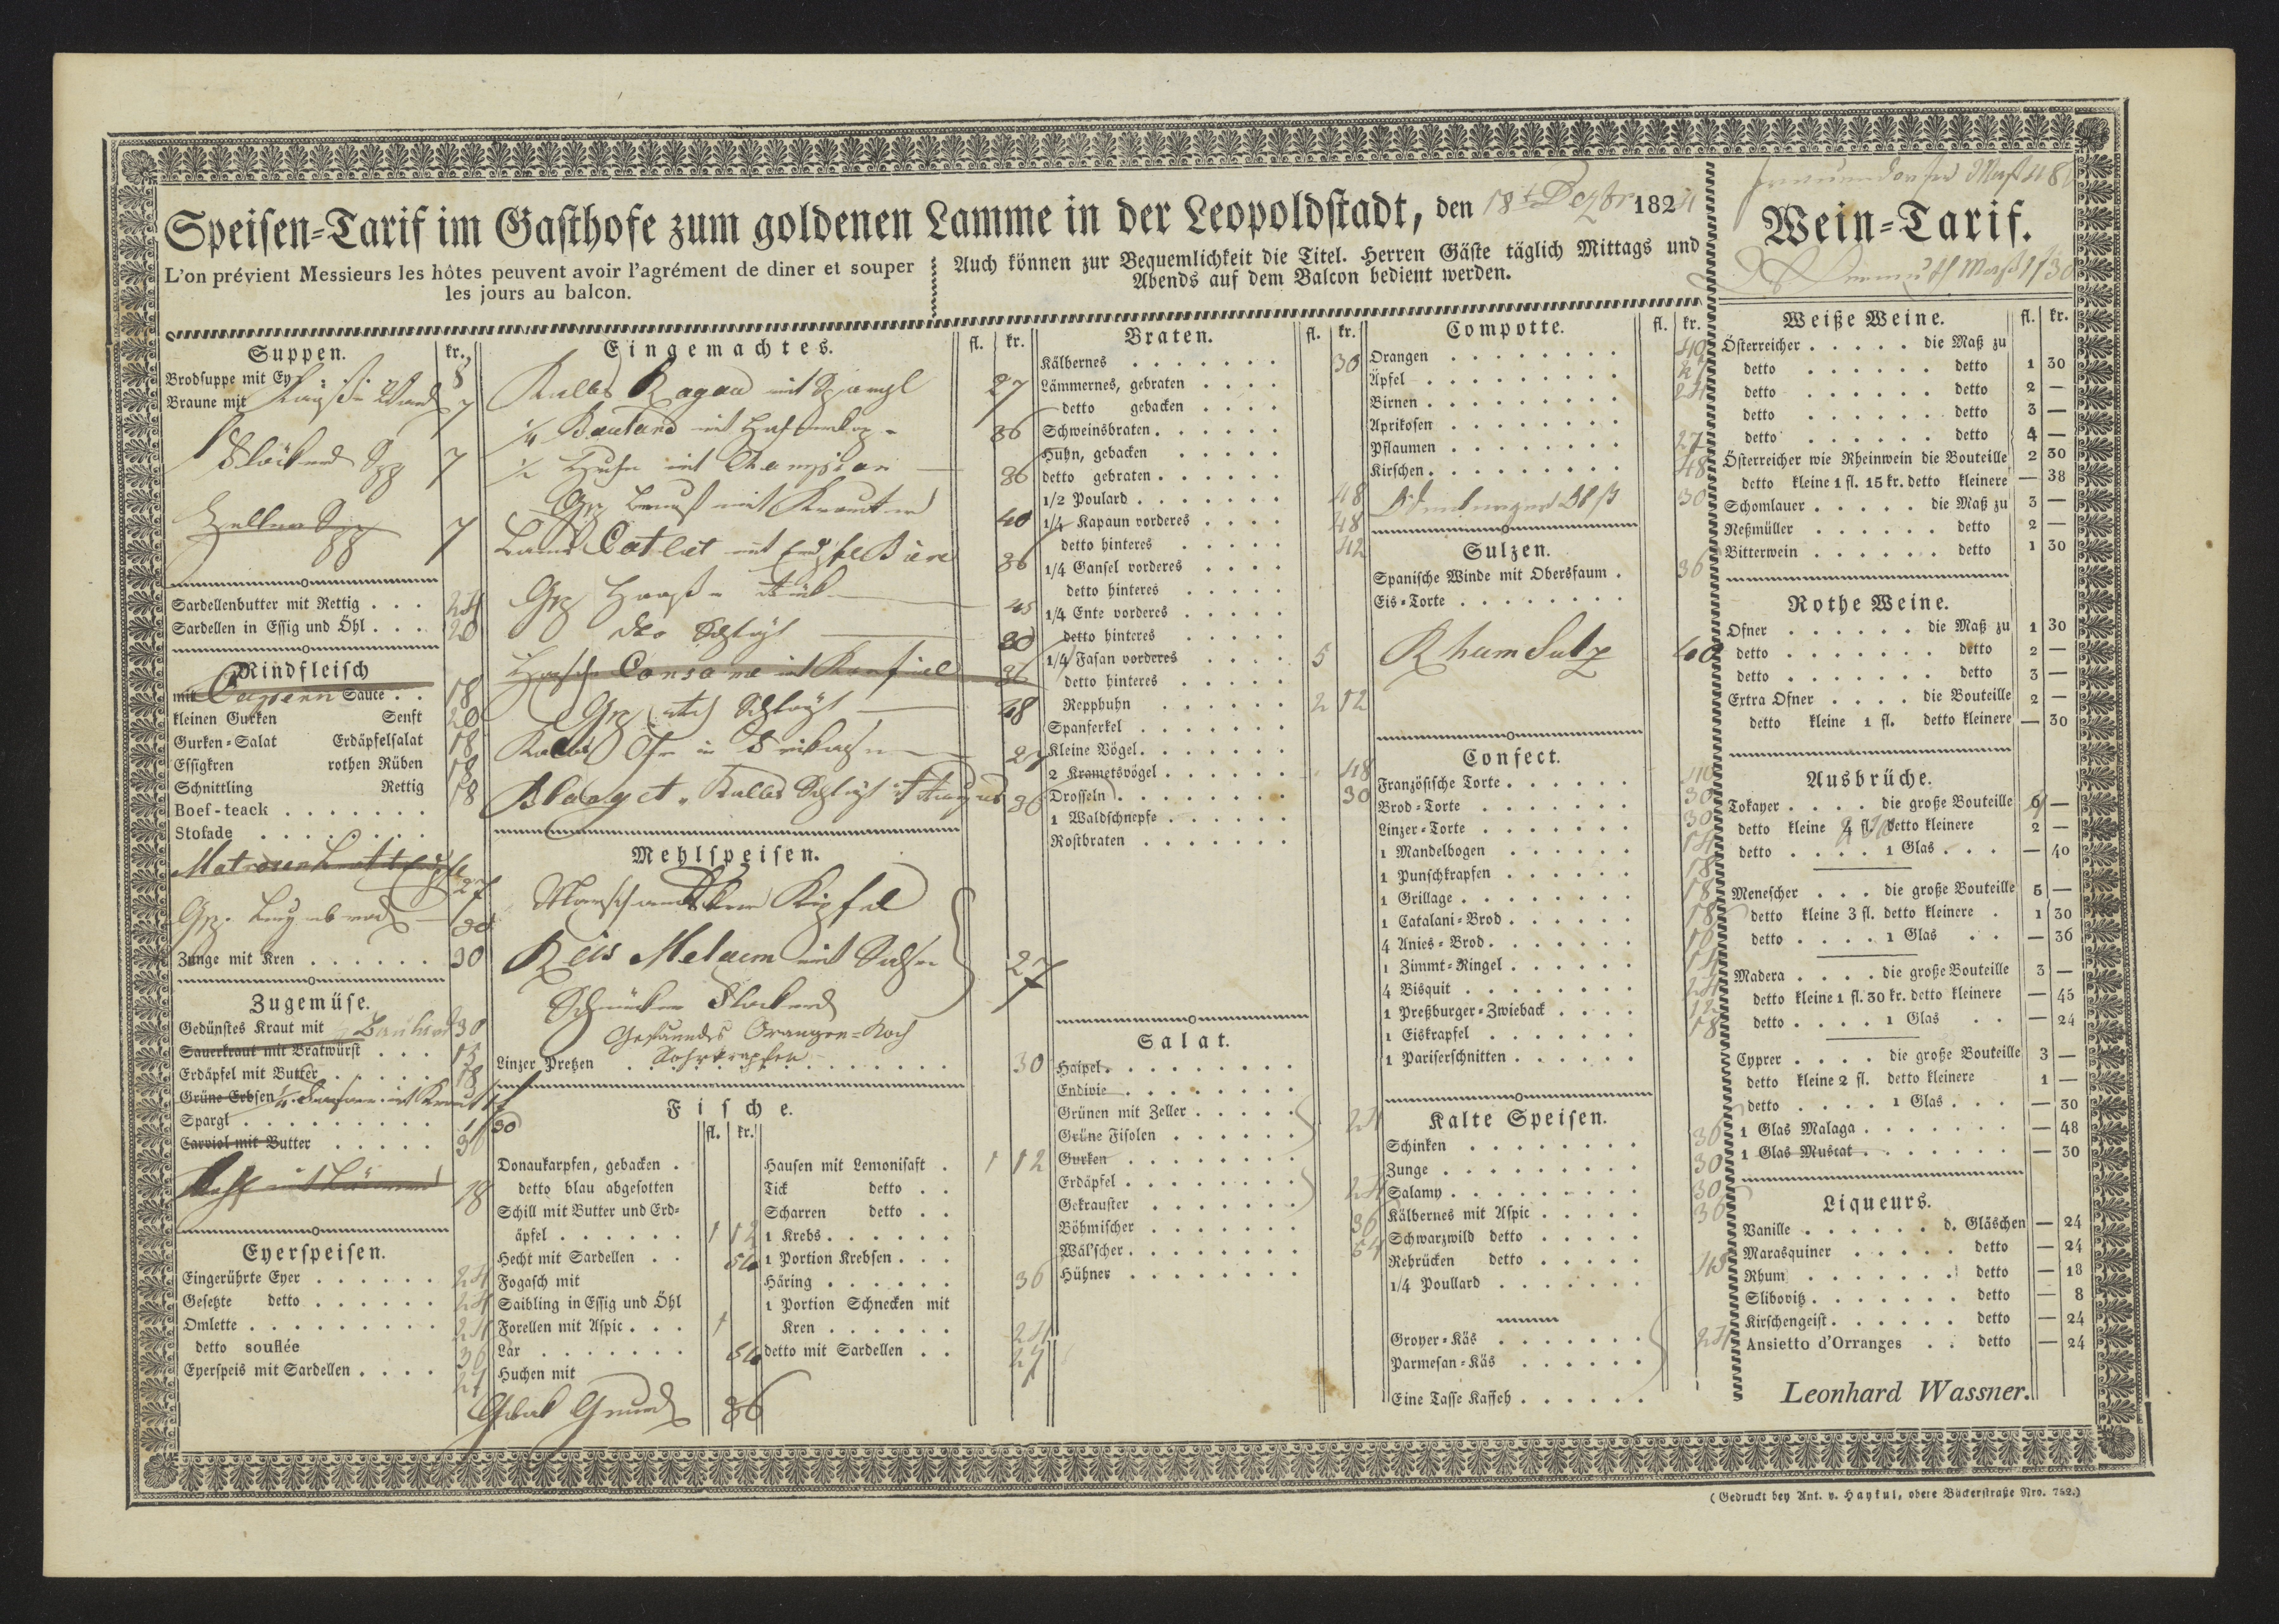 Speisen-Tarif im Gasthofe zum goldenen Lamme in der Leopoldstadt, den 18t Dezbr 1824
L'on prévient Messieurs les hôtes peuvent avoir l'agrément de diner et souper
les jours au balcon.
Auch können zur Bequemlichkeit die Titel. Herren Gäste täglich Mittags und
Abends auf dem Balcon bedient werden.
Suppen. kr.
Brodsuppe mit Ey 8
Braune mit 7
7
7
Sardellenbutter mit Rettig . . . 24
Sardellen in Essig und Öhl . . . 20
Rindfleisch
mit Cappern Sauce . . 18
kleinen Gurken Senft 20
Gurken-Salat Erdäpfelsalat 18
Essigkren rothen Rüben 18
Schnittling Rettig 18
Boef-teack . . . . . . .
Stofade . . . . . . . .
27
30
Zunge mit Kren . . . . . . 30
Zugemüse.
Gedünstes Kraut mit 30
Sauerkraut mit Bratwürst . . .
Erdäpfel mit Butter . . . . . 18
Grüne Erbsen
Spargl . . . . . . . . . .
Carviol mit Butter . . . . .
18
Eyerspeisen.
Eingerührte Eyer . . . . . . 24
Gesetzte detto . . . . . . 24
Omlette . . . . . . . . . 24
detto souflée 36
Eyerspeis mit Sardellen . . . . 27
Eingemachtes. fl. kr.
Kalbs Ragou mit 27
mit 36
1/2 Huhn mit Champion 36
mit 40
Cotlet mit 36
45
30
mit 36
48
27
36
Mehlspeisen.
Kipfel
Reis Melaem mit 27
Orangen-Koch
Linzer Pretzen . . . . . . . . 30
Fische.
fl. kr.
Donaukarpfen, gebacken .
detto blau abgesotten
Schill mit Butter und Erd-
äpfel . . . . . . 1 12
Hecht mit Sardellen . . 54
Fogasch mit
Saibling in Essig und Öhl
Forellen mit Aspic . . . 1
Lax . . . . . . . 54
Huchen mit
36
Hausen mit Lemonisaft . 1 12
Tick detto . .
Scharren detto . .
1 Krebs . . . . . .
1 Portion Krebsen . . .
Häring . . . . . . 36
1 Portion Schnecken mit
Kren . . . . . . 24
detto mit Sardellen . . 27
Braten. fl. kr.
Kälbernes . . . . . . . 30
Lämmernes, gebraten . . . .
detto gebacken . . . .
Schweinsbraten . . . . . .
Huhn, gebacken . . . . .
detto gebraten . . . . . .
1/2 Poulard . . . . . . . 48
1/4 Kapaun vorderes . . . . 48
detto hinteres . . . . . 42
1/4 Gansel vorderes . . . .
detto hinteres . . . . .
1/4 Ente vorderes . . . . .
detto hinteres . . . . .
1/4 Fasan vorderes . . . . 5
detto hinteres . . . . .
Repphuhn . . . . . . 2 12
Spanferkel . . . . . . .
Kleine Vögel . . . . . . .
2 Krametsvögel . . . . . . 48
Drosseln . . . . . . . . 30
1 Waldschnepfe . . . . . .
Rostbraten . . . . . . .
Salat.
Haipel . . . . . . . .
Endivie . . . . . . . .
Grünen mit Zeller . . . . . 24
Grüne Fisolen . . . . . .
Gurken . . . . . . . .
Erdäpfel . . . . . . . .
Gekrauster . . . . . . . 24
Böhmischer . . . . . . . 36
Wälscher . . . . . . . . 54
Hühner . . . . . . . .
Compotte. fl. kr.
Orangen . . . . . . . . 40
Äpfel . . . . . . . . . 27
Birnen . . . . . . . . . 24
Aprikosen . . . . . . . .
Pflaumen . . . . . . . . 27
Kirschen . . . . . . . . . 48
30
Sulzen.
Spanische Winde mit Obersfaum . 36
Eis-Torte . . . . . . . .
Rhum Sulz 40
Confect.
Französische Torte . . . . . . 40
Brod-Torte . . . . . . . 30
Linzer-Torte . . . . . . . 30
1 Mandelbogen . . . . . . 14
1 Punschkrapfen . . . . . . 18
1 Grillage . . . . . . . . 18
1 Catalani-Brod . . . . . . 18
4 Anies-Brod . . . . . . . 16
1 Zimmt-Ringel . . . . . . 14
4 Bisquit . . . . . . . . 24
1 Preßburger-Zwieback . . . . 12
1 Eiskrapfel . . . . . . . 18
1 Pariserschnitten . . . . . .
Kalte Speisen.
Schinken . . . . . . . . 36
Zunge . . . . . . . . . 30
Salamy . . . . . . . . . 30
Kälbernes mit Aspic . . . . . 36
Schwarzwild detto . . . . .
Rehrücken detto . . . . . 48
1/4 Poullard . . . . . . .
Groyer-Käs . . . . . . . 24
Parmesan-Käs . . . . . .
Eine Tasse Kaffeh . . . . . .
Maß 48
Wein-Tarif.
Maß 1/30
Weiße Weine. fl. kr.
Österreicher . . . . . die Maß zu
detto . . . . . . detto 1 30
detto . . . . . . detto 2 —
detto . . . . . . detto 3 —
detto . . . . . . detto 4 —
Österreicher wie Rheinwein die Bouteille 2 30
detto kleine 1 fl. 15 kr. detto kleinere — 38
Schomlauer . . . . . die Maß zu 3 —
Neßmüller . . . . . . detto 2 —
Bitterwein . . . . . . detto 1 30
Rothe Weine.
Ofner . . . . . . die Maß zu 1 30
detto . . . . . . . detto 2 —
detto . . . . . . . detto 3 —
Extra Ofner . . . . die Bouteille 2 —
detto kleine 1 fl. detto kleinere — 30
Ausbrüche.
Tokayer . . . . die große Bouteille 6 —
detto kleine 4 fl. detto kleinere 2 —
detto . . . . 1 Glas . . . — 40
Menescher . . . die große Bouteille 5 —
detto kleine 3 fl. detto kleinere . 1 30
detto . . . . 1 Glas . . — 36
Madera . . . . die große Bouteille 3 —
detto kleine 1 fl. 30 kr. detto kleinere — 45
detto . . . . 1 Glas . . — 24
Cyprer . . . . die große Bouteille 3 —
detto kleine 2 fl. detto kleinere 1 —
detto . . . . 1 Glas . . . — 30
1 Glas Malaga . . . . . . . — 48
1 Glas Muscat . . . . . . . — 30
Liqueurs.
Vanille . . . . . . d. Gläschen — 24
Marasquiner . . . . . detto — 24
Rhum . . . . . . . detto — 18
Slibovitz . . . . . . . detto — 8
Kirschengeist . . . . . . detto — 24
Ansietto d'Orranges . . detto — 24
Leonhard Wassner.
(Gedruckt bey Ant. v. Haykul, obere Bäckerstraße Nro. 752.)